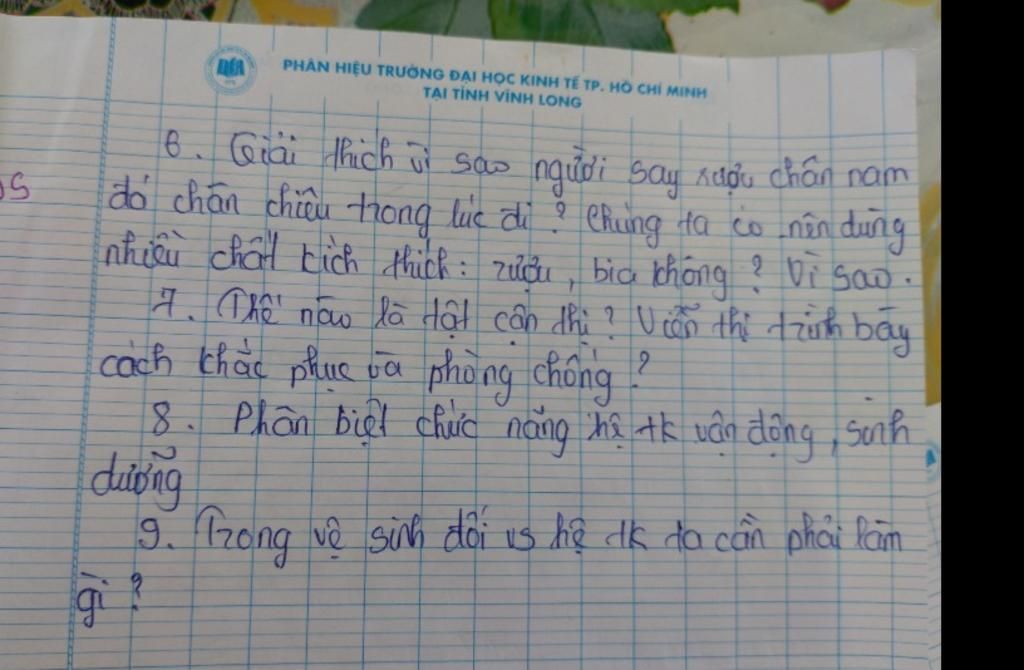 PHÂN HIỆU TRƯỜNG ĐẠI HỌC KINH TẾ TP. HỒ CHÍ MINH
TẠI TỈNH VĨNH LONG
6. Giải thích vì sao người say rượu chân nam
đá chân chiêu trong lúc đi? Chúng ta có nên dùng
nhiều chất kích thích: rượu, bia không? Vì sao.
7. Thế nào là tật cận thị? Viễn thị trình bày
cách khắc phục và phòng chống?
8. Phân biệt chức năng hệ tk vận động, sinh
dưỡng
9. Trong vệ sinh đối vs hệ tk ta cần phải làm
gì?